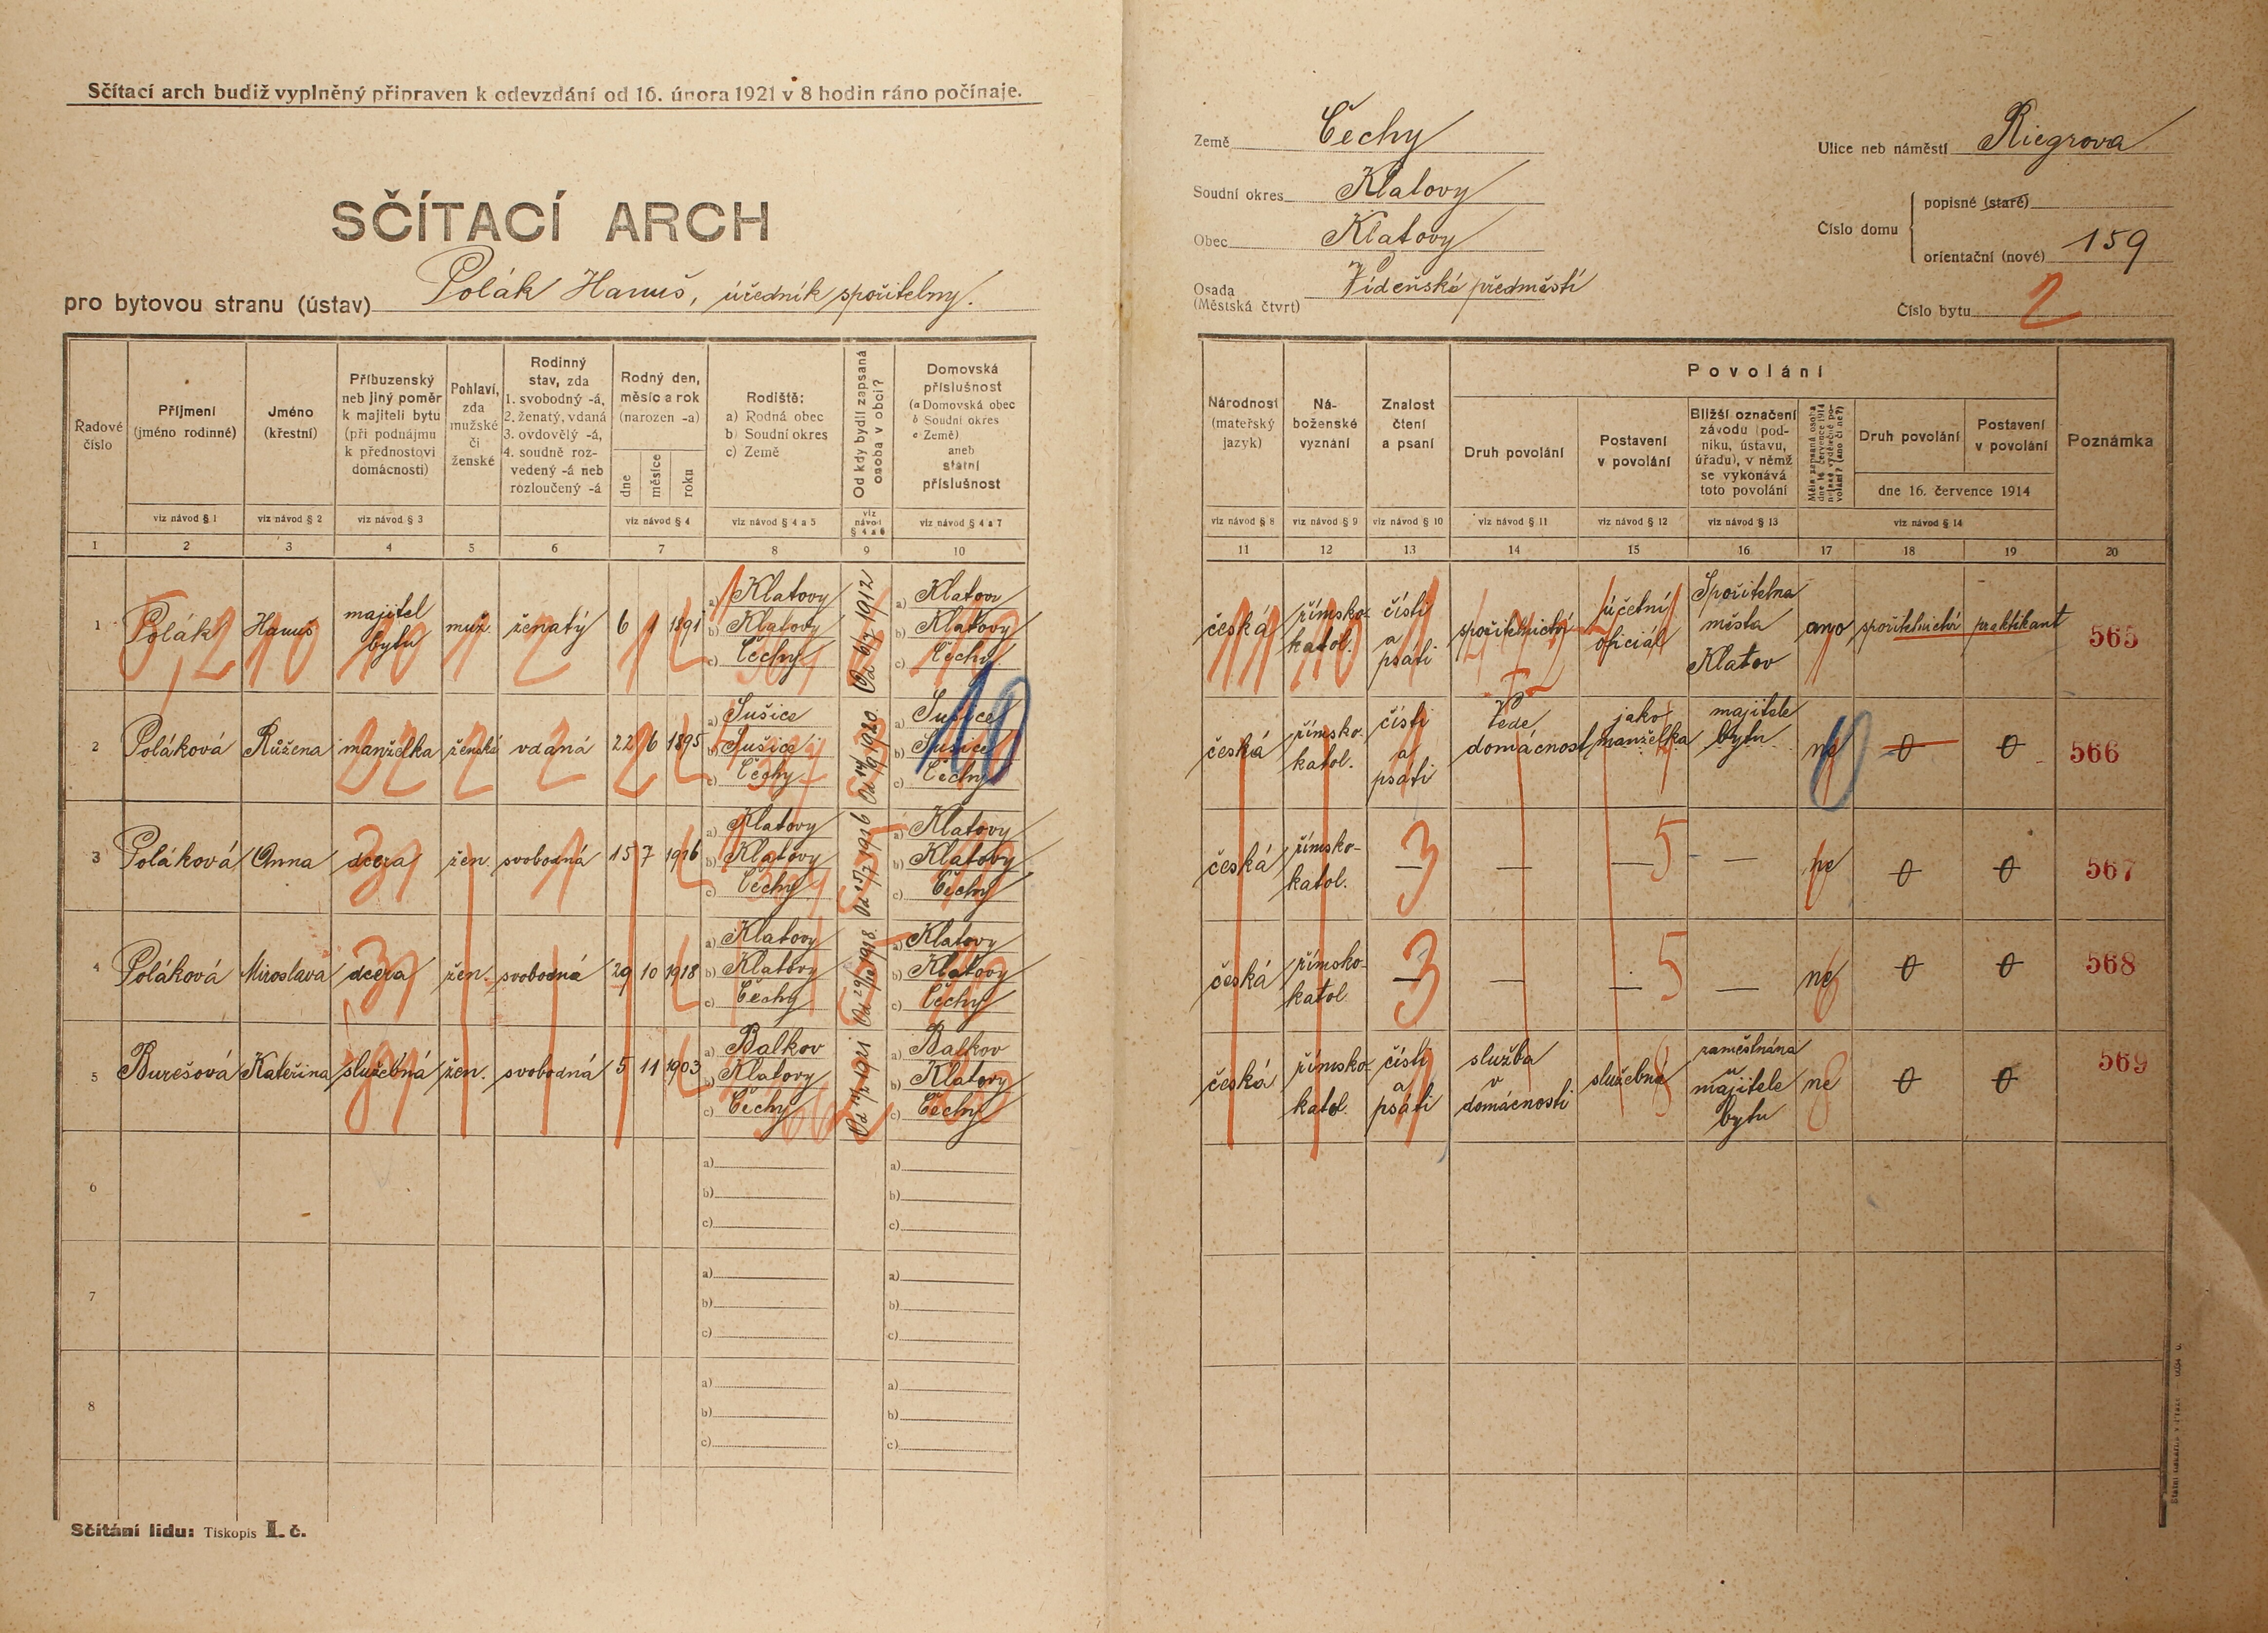 Sčítací arch budiž vyplněný připraven k odevzdání od 16. února 1921 v 8 hodin ráno počínaje.
SČÍTACÍ ARCH
pro bytovou stranu (ústav) Polák Hanuš, účedník spořitelny.
Země Čechy
Soudní okres Klatovy
Obec Klatovy
Osada (Městská čtvrť) Vídeňské předměstí
Ulice neb náměstí Riegrova
Číslo domu
popisné (staré)
orientační (nové) 159
Číslo bytu 2
Řadové číslo
Příjmení (jméno rodinné)
viz návod § 1
Jméno (křestní)
viz návod § 2
Příbuzenský neb jiný poměr k majiteli bytu (při podnájmu k přednostovi domácnosti)
viz návod § 3
Pohlaví, zda mužské či ženské
Rodinný stav, zda
1. svobodný -á,
2. ženatý, vdaná
3. ovdovělý -á,
4. soudně rozvedený -á neb rozloučený -á
Rodný den, měsíc a rok (narozen -a)
dne měsíce roku
viz návod § 4
Rodiště:
a) Rodná obec
b) Soudní okres
c) Země
viz návod § 4 a 5
Od kdy bydlí zapsaná osoba v obci?
viz návod § 4 a 6
Domovská příslušnost
(a Domovská obec
b Soudní okres
c Země)
aneb státní příslušnost
viz návod § 4 a 7
Národnost (mateřský jazyk)
viz návod § 8
Náboženské vyznání
viz návod § 9
Znalost čtení a psaní
viz návod § 10
Povolání
Druh povolání
viz návod § 11
Postavení v povolání
viz návod § 12
Bližší označení závodu (podniku, ústavu, úřadu), v němž se vykonává toto povolání
viz návod § 13
Měla zapsaná osoba dne 16. července 1914 nějaké výdělečné povolání? (ano či ne?)
Druh povolání
Postavení v povolání
dne 16. července 1914
viz návod § 14
Poznámka
1 2 3 4 5 6 7 8 9 10 11 12 13 14 15 16 17 18 19 20
1 Polák Hanuš majitel bytu muž. ženatý 6 1 1891 a) Klatovy b) Klatovy c) Čechy Od 6/7 1912 a) Klatovy b) Klatovy c) Čechy česká římsko-katol. čísti a psáti spořitelnictví účetní oficiál Spořitelna města Klatov ano spořitelnictví praktikant 565
2 Poláková Růžena manželka ženská vdaná 22 6 1895 a) Sušice b) Sušice c) Čechy 1920 a) Sušice b) Sušice c) Čechy 10 česká římsko-katol. čísti a psáti Vede domácnost jako manželka majitele bytu ne 0 0 566
3 Poláková Anna dcera žen. svobodná 15 7 1916 a) Klatovy b) Klatovy c) Čechy Od 15/7 1916 a) Klatovy b) Klatovy c) Čechy česká římsko-katol. — 3 — — 5 — ne 0 0 567
4 Poláková Miroslava dcera žen. svobodná 29 10 1918 a) Klatovy b) Klatovy c) Čechy Od 29/10 1918. a) Klatovy b) Klatovy c) Čechy česká římsko-katol — 3 — — 5 — ne 0 0 568
5 Burešová Kateřina služebná žen. svobodná 5 11 1903 a) Balkov b) Klatovy c) Čechy 1921 a) Balkov b) Klatovy c) Čechy česká římsko-katol. čísti a psáti služba v domácnosti služebná zaměstnána u majitele bytu ne 0 0 569
6 a) b) c) a) b) c)
7 a) b) c) a) b) c)
8 a) b) c) a) b) c)
Sčítání lidu: Tiskopis I. č.